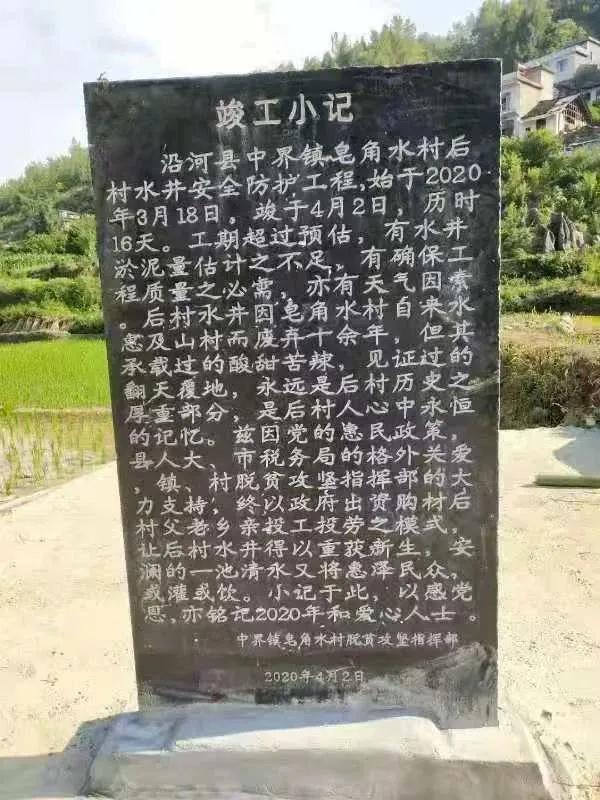 竣工小记
沿河县中界镇皂角水村后
村水井安全防护工程,始于2020
年3月18日，竣于4月2日，历时
16天。工期超过预估，有水井
淤泥量估计之不足，有确保工
程质量之必需，亦有天气因素
。后村水井因皂角水村自来水
惠及山村而废弃十余年，但其
承载过的酸甜苦辣，见证过的
翻天覆地，永远是后村历史之
厚重部分，是后村人心中永恒
的记忆。兹因党的惠民政策，
县人大、市税务局的格外关爱
，镇、村脱贫攻坚指挥部的大
力支持，终以政府出资购材后
村父老乡亲投工投劳之模式，
让后村水井得以重获新生，安
澜的一池清水又将惠泽民众，
或灌或饮。小记于此，以感党
恩，亦铭记2020年和爱心人士。
中界镇皂角水村脱贫攻坚指挥部
2020年4月2日